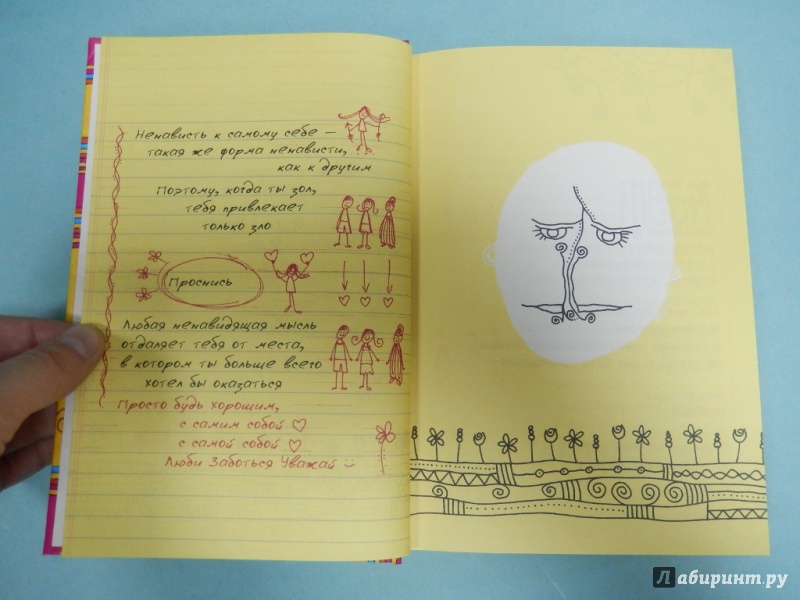 Ненависть к самому себе –
такая же форма ненависти,
как к другим
Поэтому, когда ты зол,
тебя привлекает
только зло
Проснись
Любая ненавидящая мысль
отдаляет тебя от места,
в котором ты больше всего
хотел бы оказаться
Просто будь хорошим,
с самим собой ♡
с самой собой ♡
Люби Заботься Уважай
Лабиринт.ру